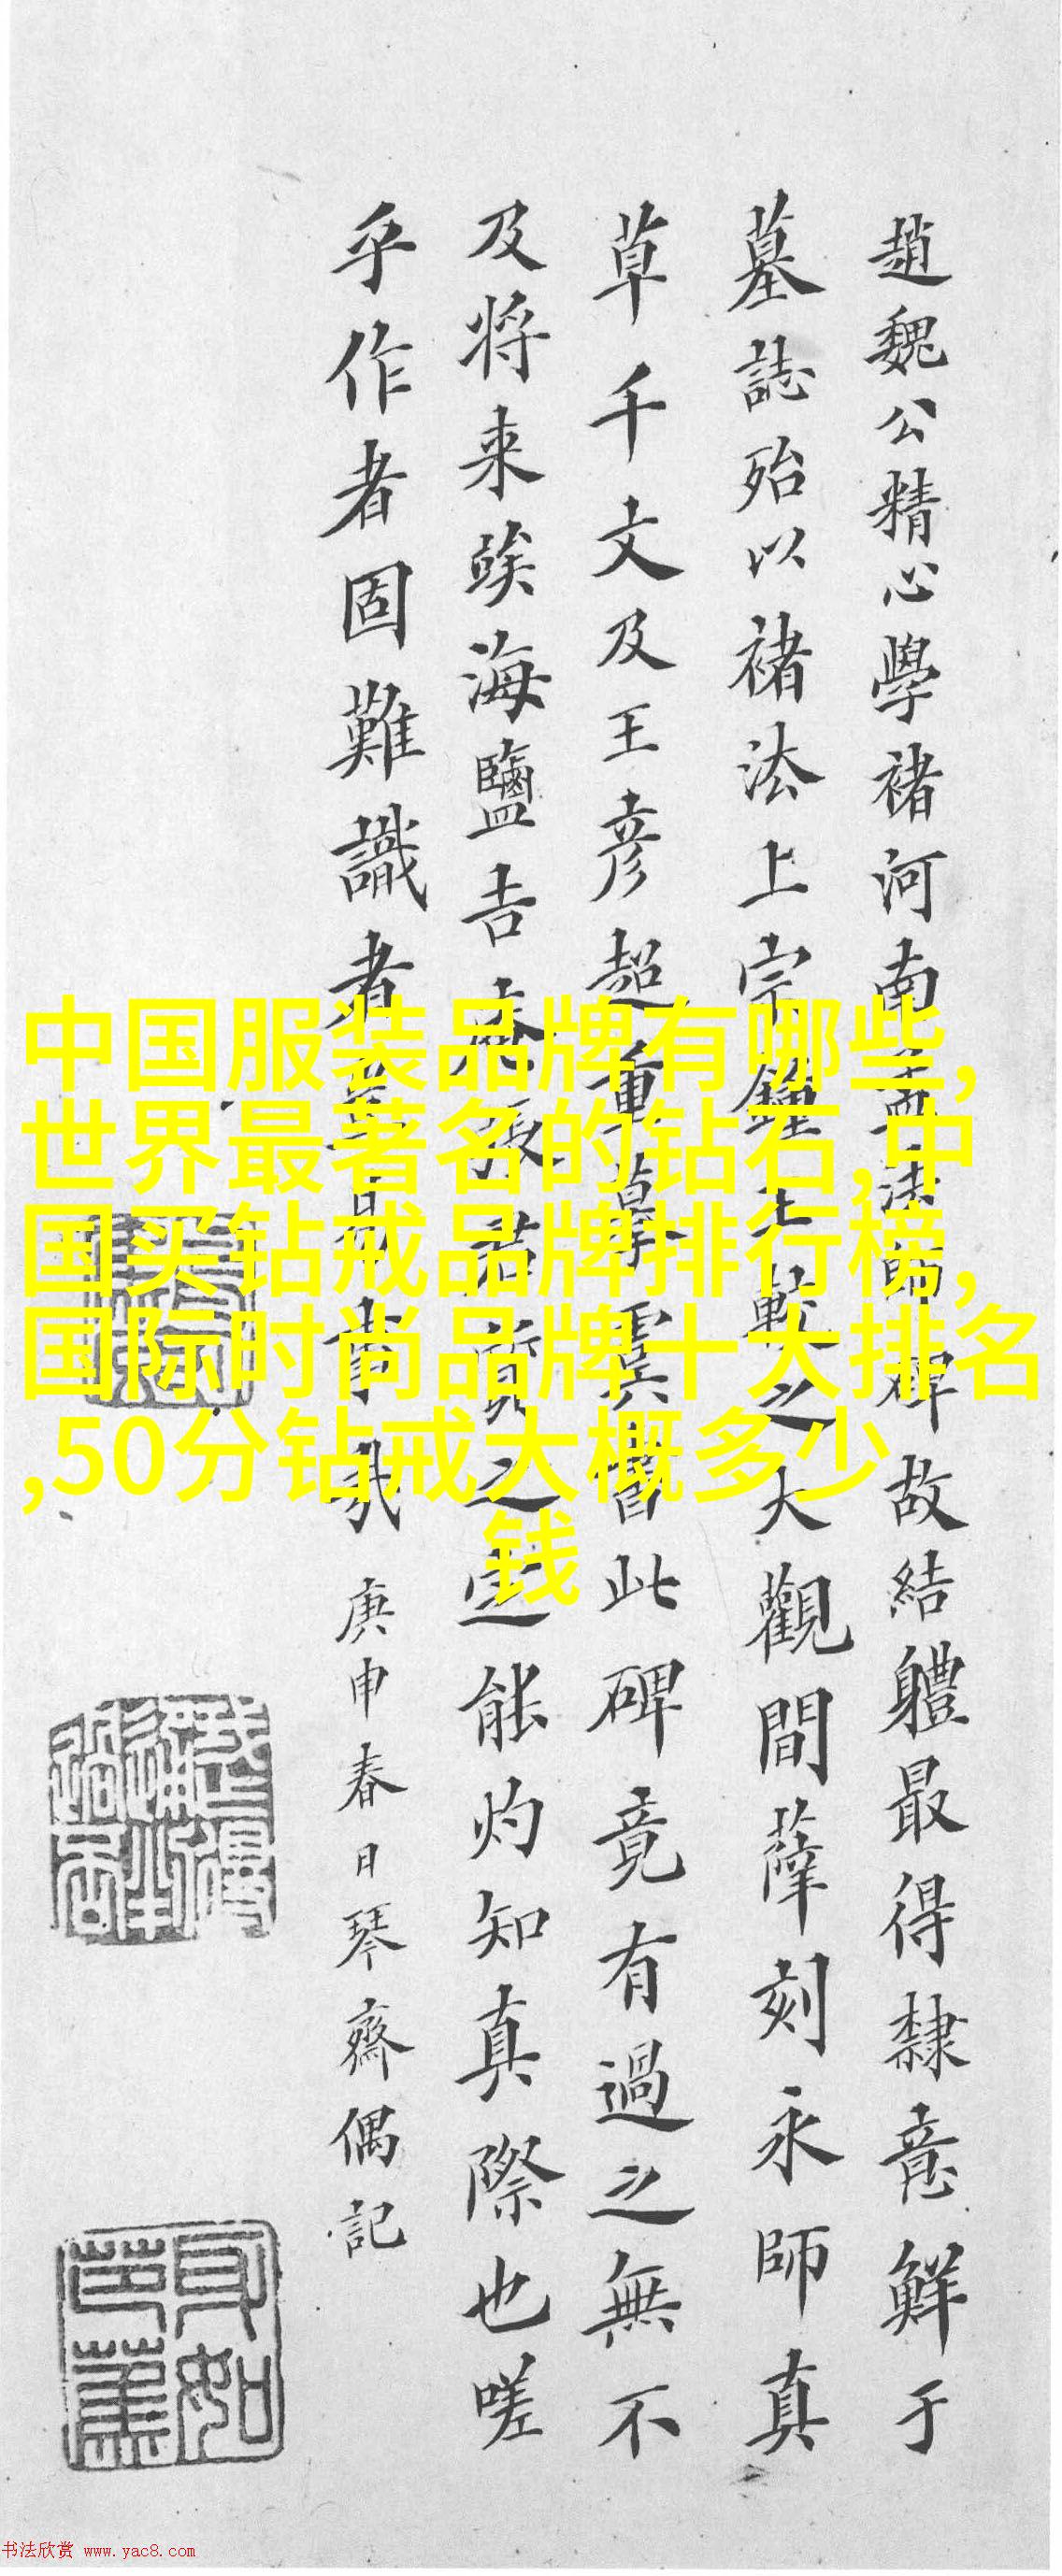 趙魏公精心學褚河南孟法師碑故結軆最得隸意鮮于
墓誌殆以褚法上宗鍾王較之大觀間薛刻永師真
草千文及王彦超重摹虞書此碑竟有過之無不
及將来竢海鹽吉甫張君質之定能灼知真際也嗟
乎作者固難識者豈易事哉
庚申春日琴齋偶記
中国服装品牌有哪些,
世界最著名的钻石,中
国买钻戒品牌排行榜,
国际时尚品牌十大排名
,50分钻戒大概多少
钱
书法欣赏 www.yac8.com